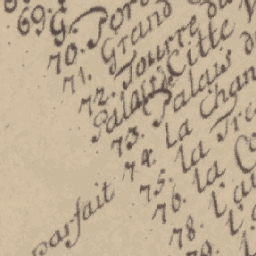 69. G.
70. Por
71. Grand
72. Tourre du
Palais Citte V
73. Palais d
74. la Chan
75. la Tre
76. la Co
78. l'au
79. l'
parfait